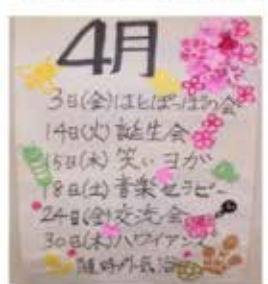 4月
3日(金)はとぽっぽの会
14日(火)誕生会
15日(水)笑いヨガ
18日(土)音楽セラピー
24日(金)交流会
30日(木)ハワイアンズ
随時外気浴